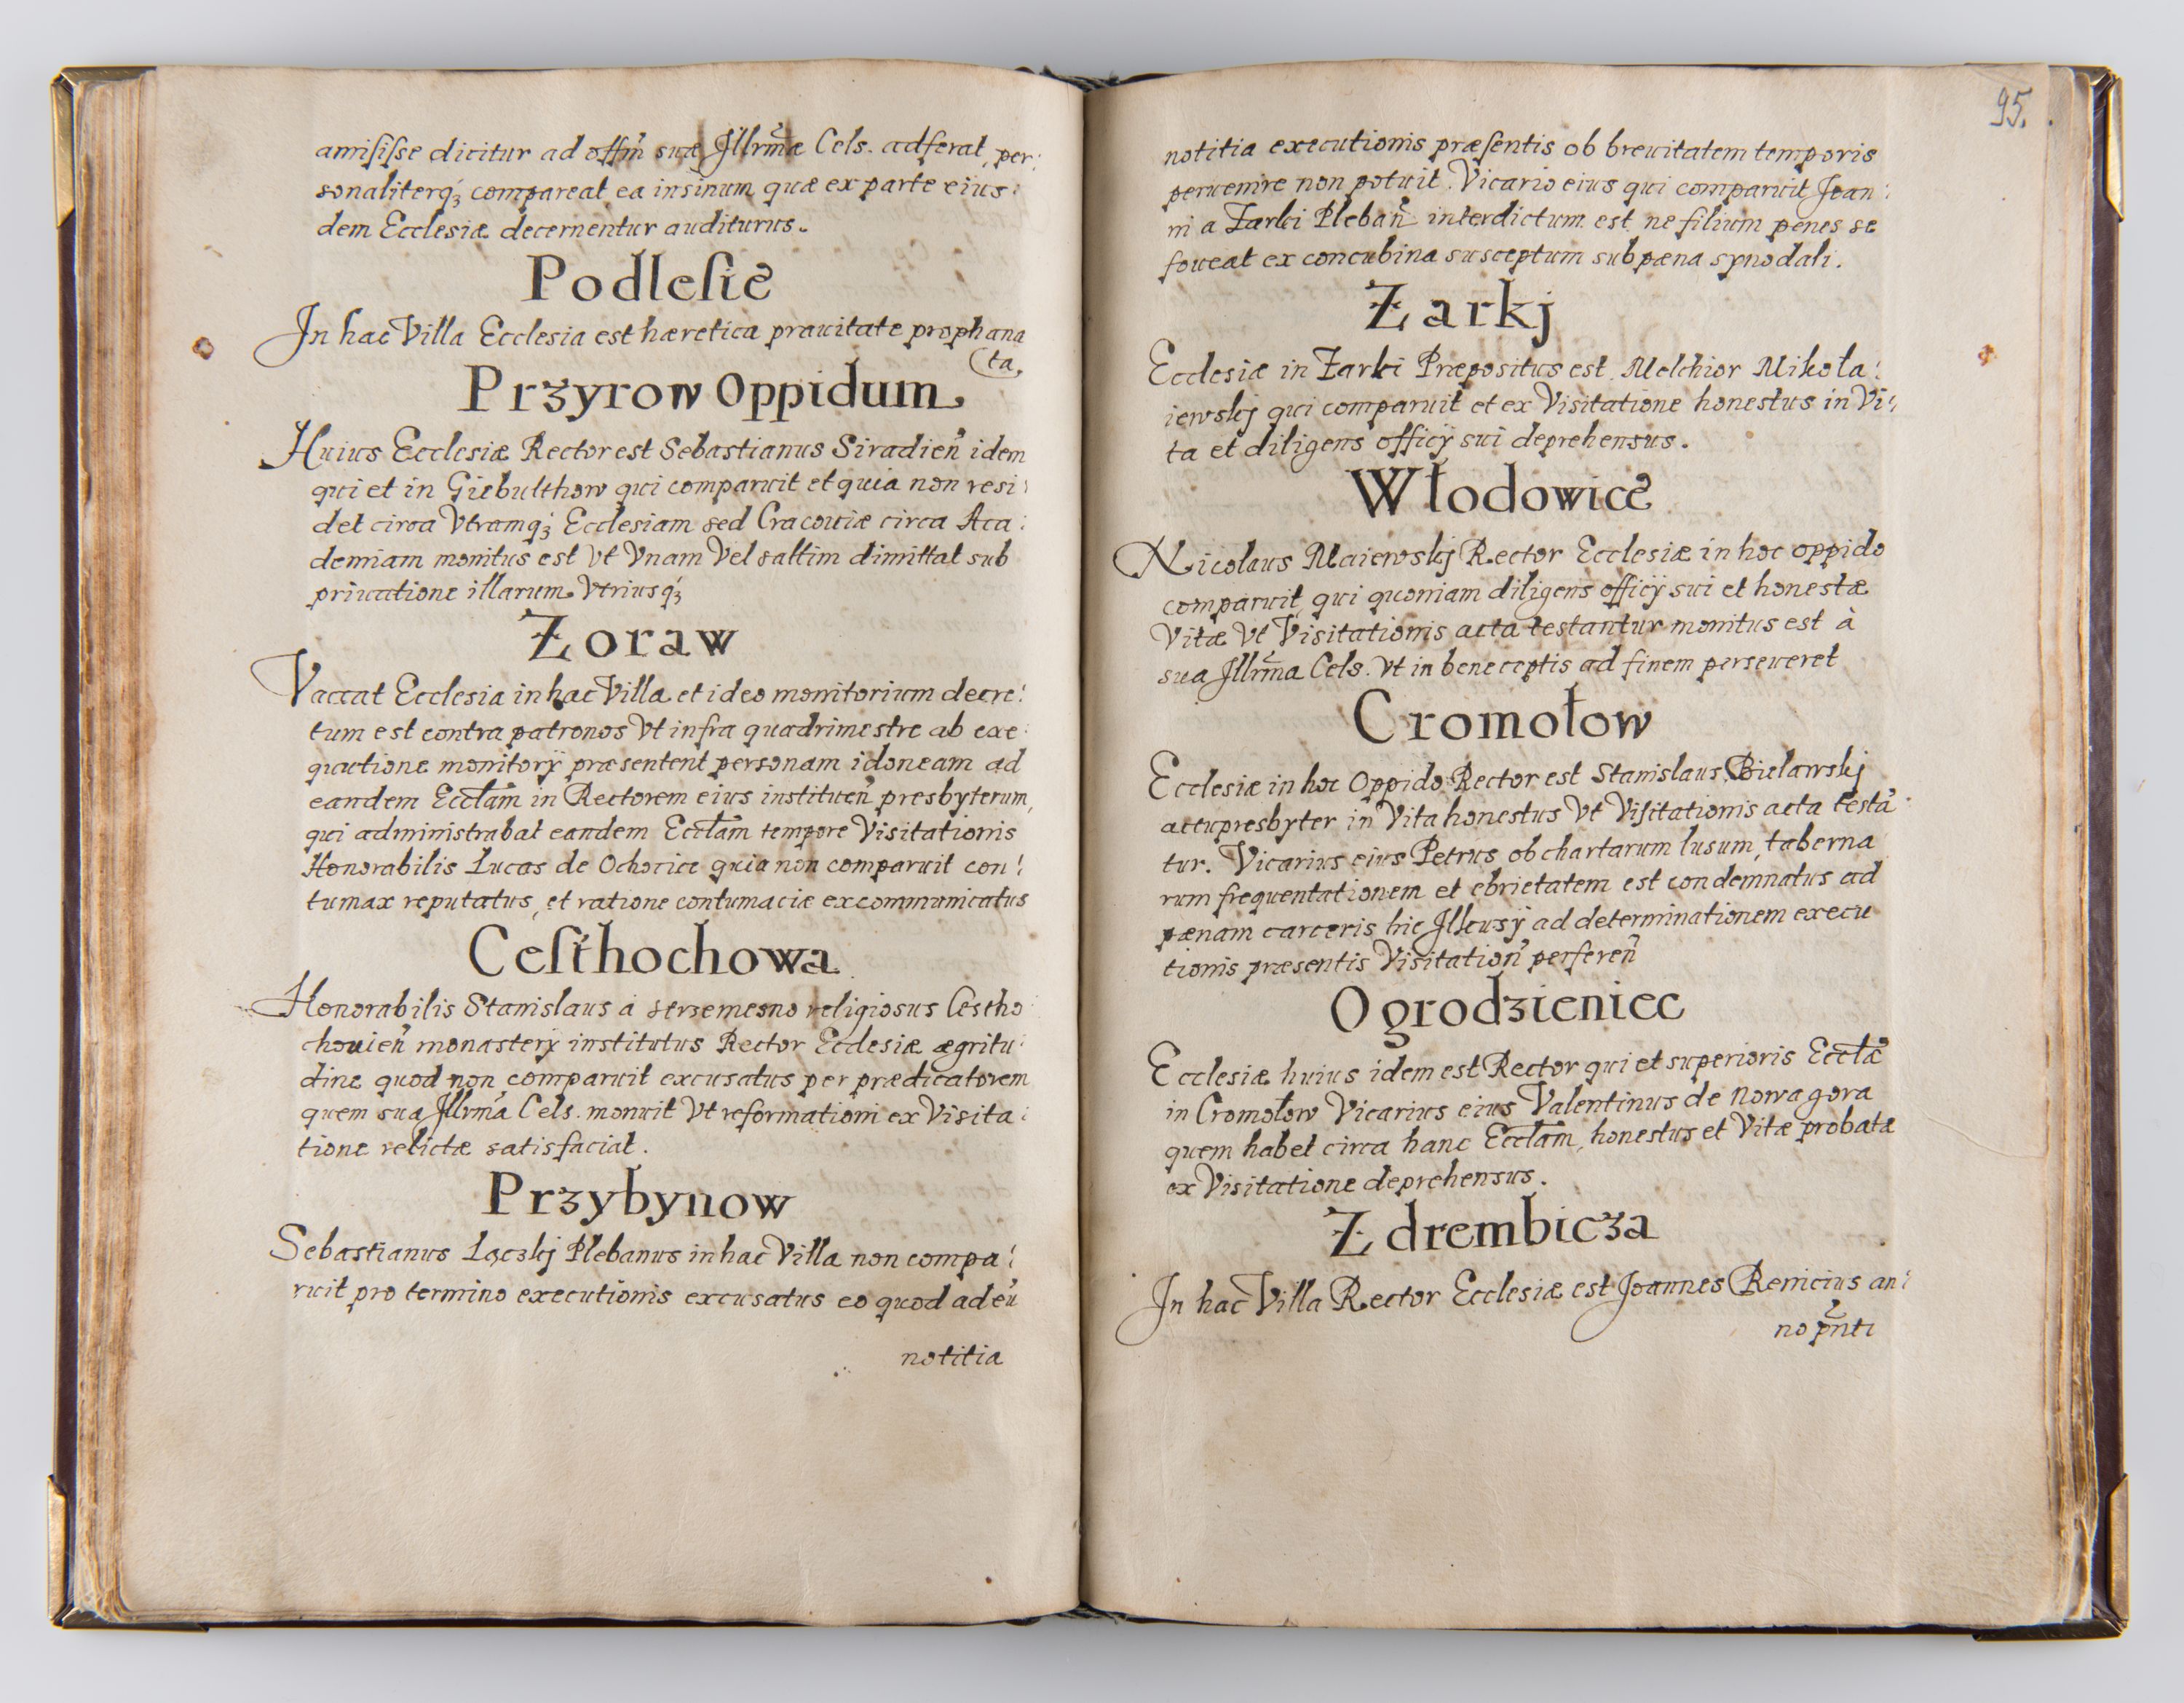 amisisse dicitur ad offm̃ suæ Jllrmæ Cels. adferat, per:
sonaliterq́ʒ compareat ea insinum quæ ex parte eius:
dem Ecclesiæ decernentur auditurus.
Podlesie
Jn hac Villa Ecclesia est hæretica prauitate prophana
ta.
Przyrow Oppidum
Huius Ecclesiæ Rector est Sebastianus Siradien̄ idem
qui et in Giebulthow qui comparuit et quia non resi:
det circa Vtramq́ʒ Ecclesiam sed Cracouiæ circa Aca:
demiam monitus est Vt Vnam Vel saltim dimittat sub
priuatione illarum Vtriusq́ʒ
Zoraw
Vaccat Ecclesia in hac Villa et ideo monitorium decre:
tum est contra patronos Vt infra quadrimestre ab exe:
quutione monitorÿ præsentent personam idoneam ad
eandem Ecctam in Rectorem eius instituen̄ presbyterum,
qui administrabat eandem Ecctam tempore Visitationis
Honorabilis Lucas de Ochocice quia non comparuit con:
tumax reputatus, et ratione contumaciæ excommunicatus
Cesthochowa
Honorabilis Stanislaus á strzemesno religiosus Cestho
chouien̄ monasterÿ institutus Rector Ecclesiæ ægritu:
dine quod non comparuit excusatus per prædicatorem
quem sua Jllrma Cels. monuit Vt reformationi ex Visita:
tione relictæ satisfaciat.
Przybynow
Sebastianus Lączkj Plebanus in hac Villa non compa:
ruit pro termino executionis excusatus eo quod ad eũ
notitia
95.
notitia executionis præsentis ob breuitatem temporis
peruenire non potuit. Vicario eius qui comparuit Joan:
ni a Zarki Pleban̄ interdictum est ne filium penes se
foueat ex concubina susceptum sub pæna synodali.
Zarkj
Ecclesiæ in Zarki Præpositus est Melchior Mikoła:
iewskj qui comparuit et ex Visitatione honestus in Vi:
ta et diligens officÿ sui deprehensus.
Włodowice
Nicolaus Maiewskj Rector Ecclesiæ in hoc oppido
comparuit, qui quoniam diligens officÿ sui et honestæ
Vitæ Vt Visitationis acta testantur monitus est à
sua Jllrma Cels. Vt in bene ceptis ad finem perseueret
Cromołow
Ecclesiæ in hoc Oppido Rector est Stanislaus Bielawskj
actu presbyter in Vita honestus Vt Visitationis acta testã:
tur. Vicarius eius Petrus ob chartarum lusum, taberna
rum frequentationem et ebrietatem est condemnatus ad
pænam carceris hic Jlkusÿ ad determinationem execu
tionis præsentis Visitation̄ perferen̄
Ogrodzieniec
Ecclesiæ huius idem est Rector qui et superioris Ecctæ
in Cromołow Vicarius eius Valentinus de Nowa gora
quem habet circa hanc Ecctam, honestus et Vitæ probatæ
ex Visitatione deprehensus.
Zdrembicza
Jn hac Villa Rector Ecclesiæ est Joannes Renicius an:
no p̃nti